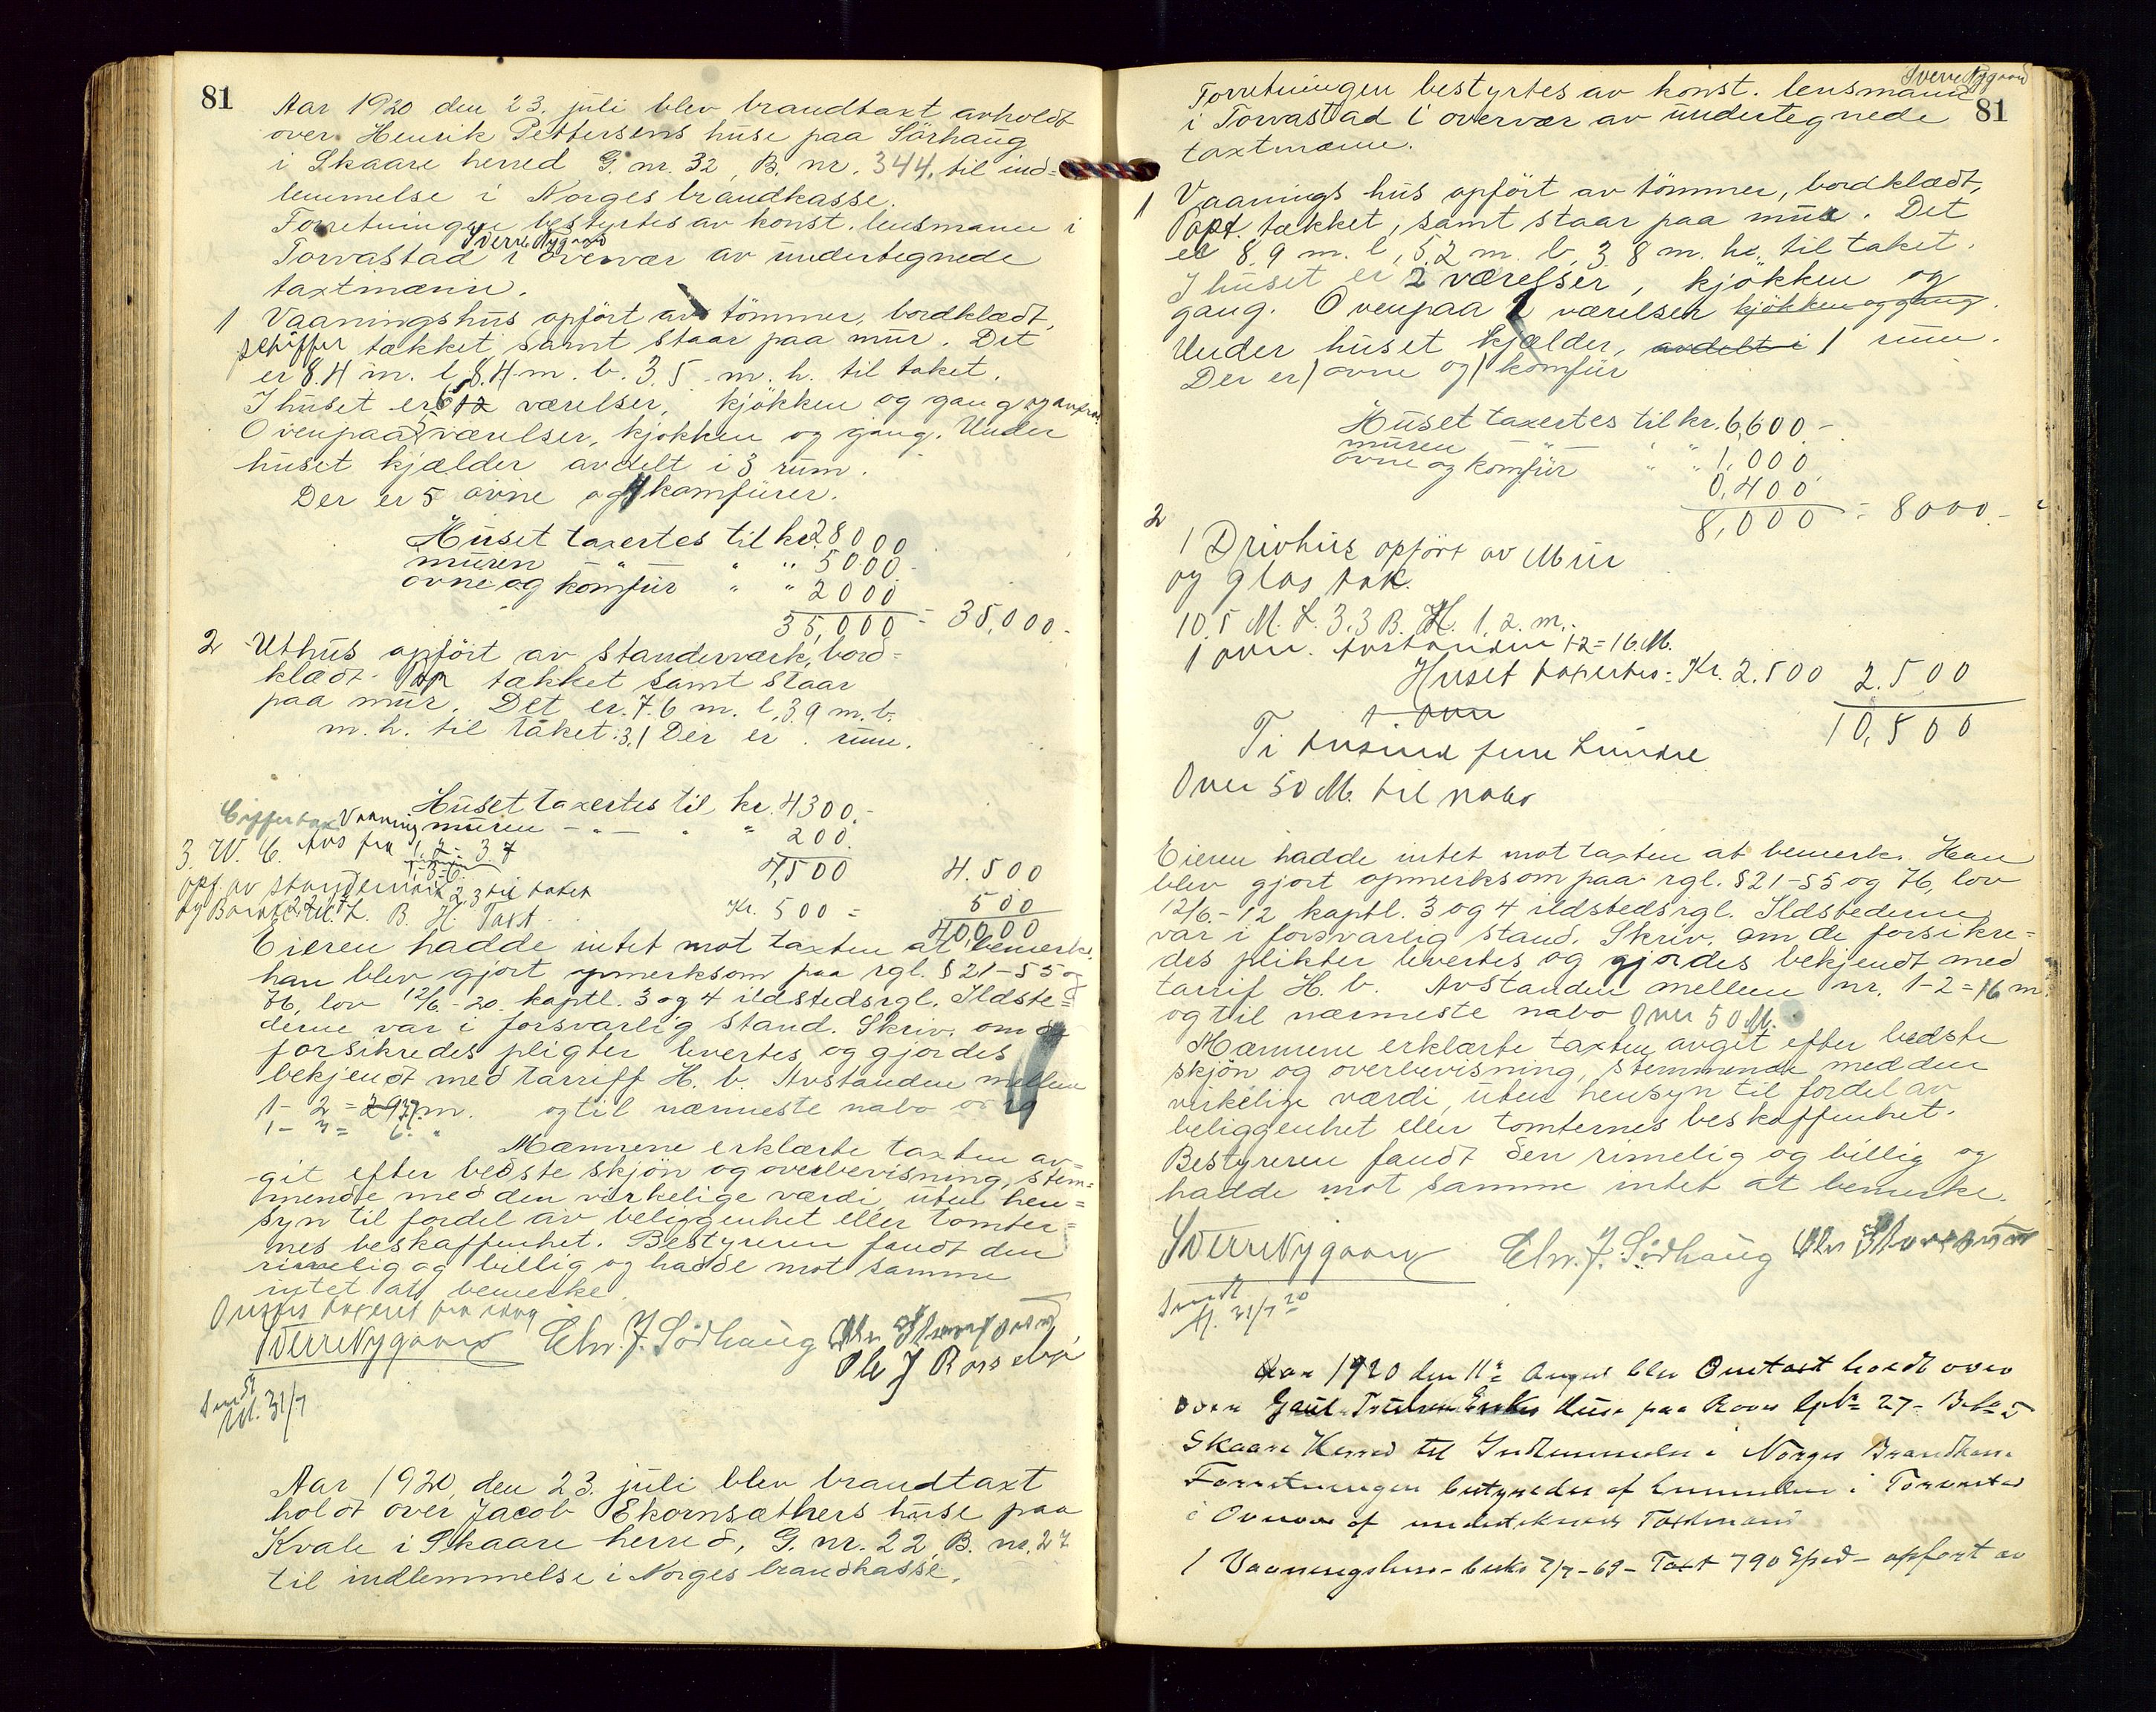 81
Aar 1920 den 23. juli blev brandtaxt avholdt
over Henrik Pettersens huse paa Sörhaug
i Skaare herred G. nr. 32, B. nr. 344. til ind=
lemmelse i Norges brandkasse.
Forretningen bestyrtes av konst. lensmann i
Sverre Nygaard
Torvastad i overvær av undertegnede
taxtmænn.
1 Vaaningshus opfört av tömmer, bordklædt,
schiffer tækket samt staar paa mur. Det
er 8.4 m. l, 8.4 m. b. 3.5 m. h. til taket.
I huset er 6 værelser, kjökken og gang
Ovenpaa 5 værelser, kjökken og gang. Under
huset kjælder avdelt i 3 rum.
Der er 5 ovne og 4 komfürer.
Huset taxertes til kr. 28000
muren — " — " " 5000.-
ovne og komfür " " 2000
35,000 = 35,000.-
2 Uthus opfört av standerværk, bord=
klædt. Pap tækket samt staar
paa mur. Det er 7.6 m. l, 3.9 m. b.
m. h. til taket: 3.1 Der er . rum.
Huset taxertes til kr. 4300.-
muren — " — " " 200.
4,500 4.500
3. W. C. Avs fra
opf. av standerværk 2.3 til taket
L. B. H. Taxt. Kr. 500 = 500
40,000
Eieren hadde intet mot taxten at bemerke.
han blev gjort opmerksom paa rgl. § 21-55 og
76, lov 12/6-20. kaptl. 3 og 4 ildstedsrgl. Ildste=
derne var i forsvarlig stand. Skriv. om de
forsikredes pligter levertes og gjordes
bekjendt med tarriff H. b. Avstanden mellem
1 - 2 = 29 37 m. og til nærmeste nabo
1 - 3 = 6. "
Mænnene erklærte taxten av=
git efter bedste skjön og overbevisning, stem=
mende med den virkelige værdi, uten hen=
syn til fordel av beliggenhet eller tomter=
nes beskaffenhet. Bestyreren fandt den
rimelig og billig og hadde mot samme
intet at bemerke.
Sverre Nygaard Eln. J. Södhaug
Ole J
Sendt
31/7
Aar 1920, den 23. juli blev brandtaxt
holdt over Jacob Ekornsæthers huse paa
Kvale i Skaare herred, G. nr. 22, B. nr. 27
til indlemmelse i Norges brandkasse.
Sverre Nygaard
Forretningen bestyrtes av konst. lensmann
81
i Torvastad i overvær av undertegnede
taxtmænn.
1 Vaanings hus opfört av tömmer, bordklædt,
Papt. tækket, samt staar paa mur. Det
er 8,9 m. l, 5,2 m. b, 3 8 m. h. til taket.
I huset er 2 værelser, kjökken og
gang. Ovenpaa værelser kjökken og gang.
Under huset kjælder, avdelt i 1 rum.
Der er 1 ovne og 1 komfür
Huset taxertes til kr. 6,600.-
muren — " — " " 1,000
ovne og komfür 0,400
8,000 = 8000.-
2
1 Drivhus opfört av Mur
og glas tak.
10,5 M. L. 3,3 B. H. 1,2. m.
1 ovn. Avstanden 1-2 = 16. M.
Huset taxertes: Kr. 2.500 2.500
1. ovn
10,500
Ti tusind fem hundre
Over 50 M. til nabo
Eieren hadde intet mot taxten at bemerk. Han
blev gjort opmerksom paa rgl. § 21-55 og 76, lov
12/6-12 kaptl. 3 og 4 ildstedsrgl. Ildstederne
var i forsvarlig stand. Skriv. om de forsikre=
des plikter levertes og gjordes bekjendt med
tarrif H. b. Avstanden mellem nr. 1-2 = 16 m.
og til nærmeste nabo Over 50 M.
Mænnene erklærte taxten avgit efter bedste
skjön og overbevisning, stemmende med den
virkelige værdi, uten hensyn til fordel av
beliggenhet eller tomternes beskaffenhet.
Bestyreren fandt den rimelig og billig og
hadde mot samme intet at bemerke.
Sverre Nygaard Eln. J. Södhaug
Sendt
31/7 20
Aar 1920 den 11te August blev Omtaxt holdt over
over huse paa Gno 27 - Bno 5
Skaare Herred til Indlemmelse i Norges Brandkasse
Forretningen bestyredes af lensmannen i Torvastad
i Overvær af undertegnede Taxtmænd
1 Vaaningshus - 7/7-69 - Taxt 790 Spd - opført av